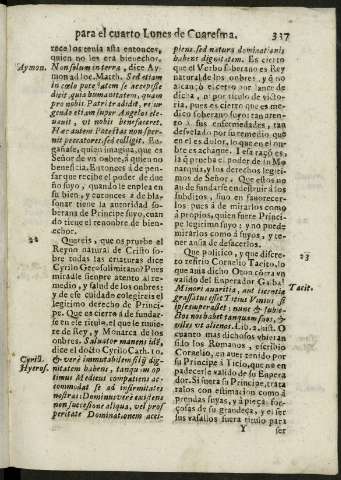 para el cuarto Lunes de Cuaresma. 337
rece los tenia asta entonces,
quien no les era bienechor.
Aymon. Non solum in terra, dice Ay-
mon ad loc. Matth. Sed etiam
in cœlo potestatem se accepisse
dixit quia humanitatem, quam
pro nobis Patri tradidit, resur-
gendo etiam super Angelos ele-
uauit, vt nobis benefaceret.
Hæc autem Potestas non sper-
nit peccatores, sed colligit. En-
gañase, quien imagina, que es
Señor de vn onbre, à quien no
beneficia. Entonces à de pen-
sar que recibe el poder de due
ño suyo, quando le enplea en
su bien, y entonces à de blaso-
sonar tiene la autoridad so-
berana de Principe suyo, cuan
do tiene el renonbre de bien-
echor.
22 Quereis, que os pruebe el
Reyno natural de Cristo sobre
todas las criaturas dice
Cyrilo Gerosolimitano? Pues
miradle sienpre atento al re-
medio, y salud de los onbres:
y de ese cuidado colegireis el
legitimo derecho de Princi-
pe. Que es cierto à de fundar-
se en ele titulo, el que le mues-
tre de Rey, y Monarca de los
onbres. Saluator manens idẽ,
Cyrill. Hyeros. dice el docto Cyrilo Cath. 10.
& verè immutabilem filij dig-
nitatem habens, tanquam op-
timus Medicus compatiens ac-
commodat se ad infirmitates
nostras: Dominus verè existens
non successione aliqua, vel pros
peritate Dominationem acci-
piens, sed natura dominationis
habens dignitatem. Es cierto
que el Verbo Soberano es Rey
natural de los onbres, y q̃ no
alcançò el cerco por lance de
dicha, ni por titulo de victo-
ria, pues es cierto que es me-
dico soberano suyo: tan aten-
to à sus enfermedades, tan
desvelado por su remedio que
en el es dulçor, lo que en el on-
bre es achaque. I esa raçõ es,
la q̃ prueba el poder de in Mo
narquia, y los derechos legiti-
mos de Señor. Que estos no à
de fundarse en destruir à los
subditos, sino en fauorecer-
los pues à de mirarlos como
à propios, quien fuere Princi-
pe legitimo suyo; y no puede
mirarlos como à suyos, y te-
ner ansia de desacerlos.
23 Que politico, y que discre-
to refiriò Cornelio Tacito, lo
que auia dicho Oton contra su
valido del Emperador Galba!
Tacit. Minore auaritia, aut licentia
grassatus esset Titus Vinius si
ipse imperasset: nunc & subie-
ctos nos habet tanquam suos, &
viles vt alienos. Lib. 1. hist. O
cuanto mas dichosos vbieran
sido los Romanos, escribio
Cornelio, en auer tenido por
su Principe à Ticio, que no en
padecerle valido de su Empera-
dor. Si fuera su Principe, trata
ralos con estimacion como à
prendas suyas, y à pieças for-
çosas de su grandeça, y el ser
sus vasallos fuera titulo para
Y ser